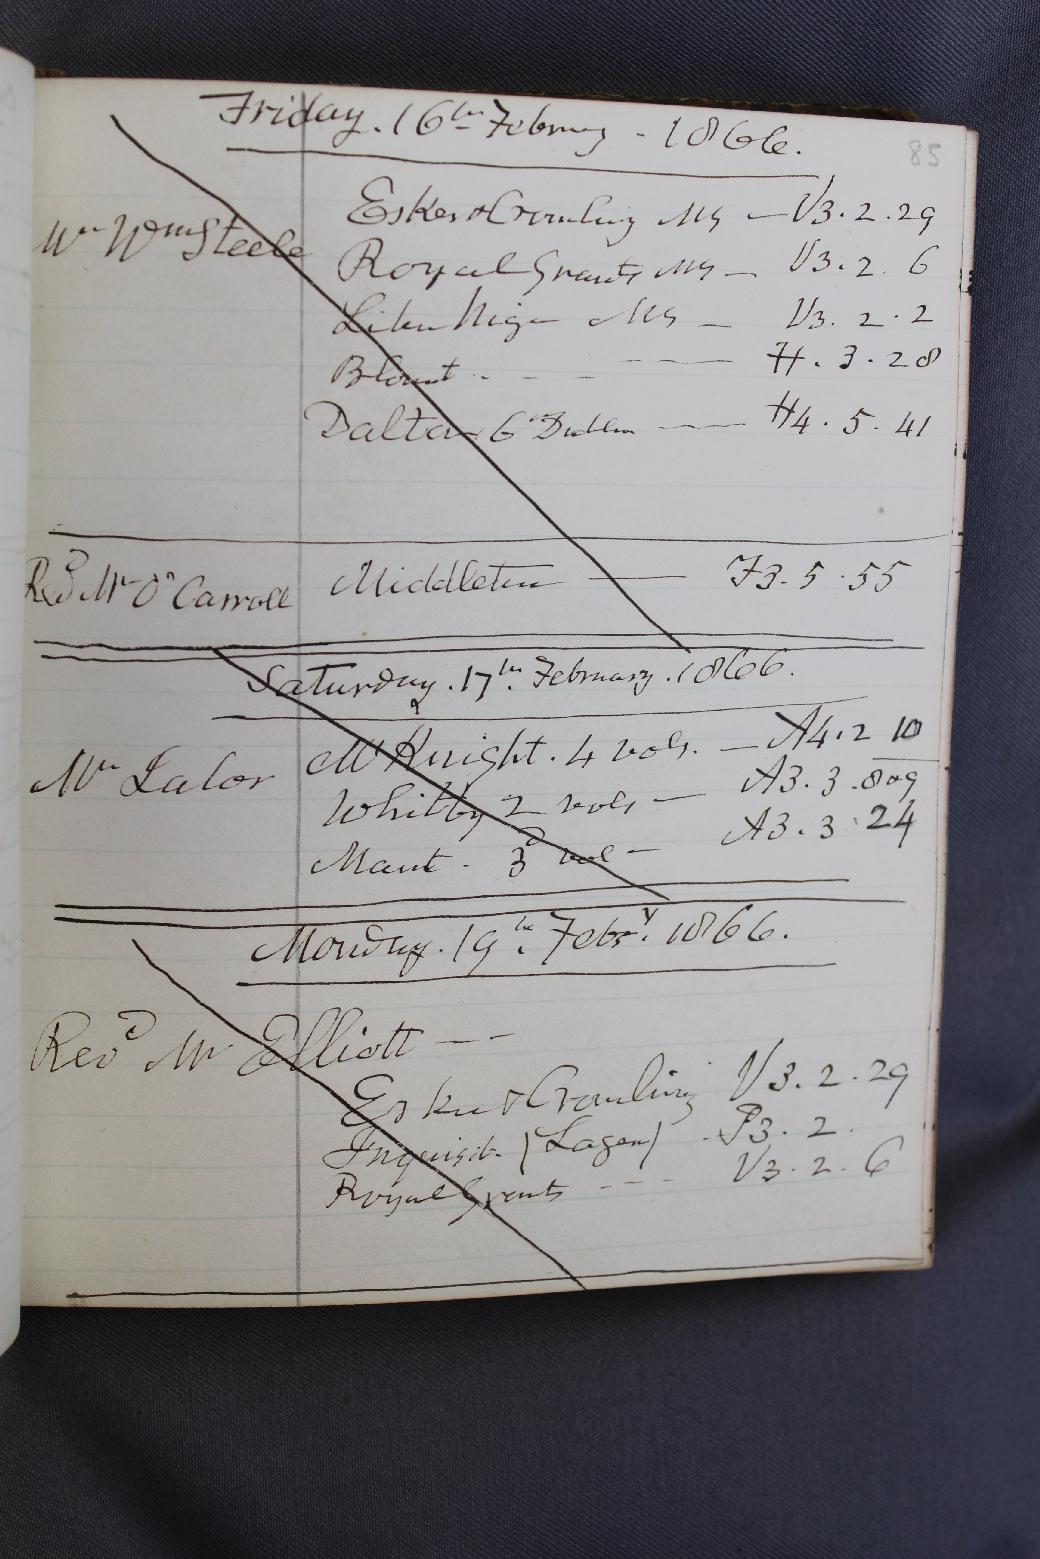 Friday. 16th February - 1866.
85
Mr Wm Steele
Esker & Cromling MS — V3. 2. 29
Royal Grants MS — V3. 2. 6
Liber Niger MS — V3. 2. 2
Blount - - - — H. 3. 28
Dalton Co Dublin — H4. 5. 41
Revd Mr O'Carroll Middleton — F3. 5. 55
Saturday. 17th. February. 1866.
Mr Lalor
McKnight. 4 vols. — A4. 2 10
Whitby 2 vols — A3. 3. 8 & 9
Mant. 3d vol — A3. 3. 24
Monday. 19th. Febry. 1866.
Revd Mr Elliott — —
Esker & Cromling V3. 2. 29
Inquisit. (Lagen) . P3. 2.
Royal Grants - - - V3. 2. 6